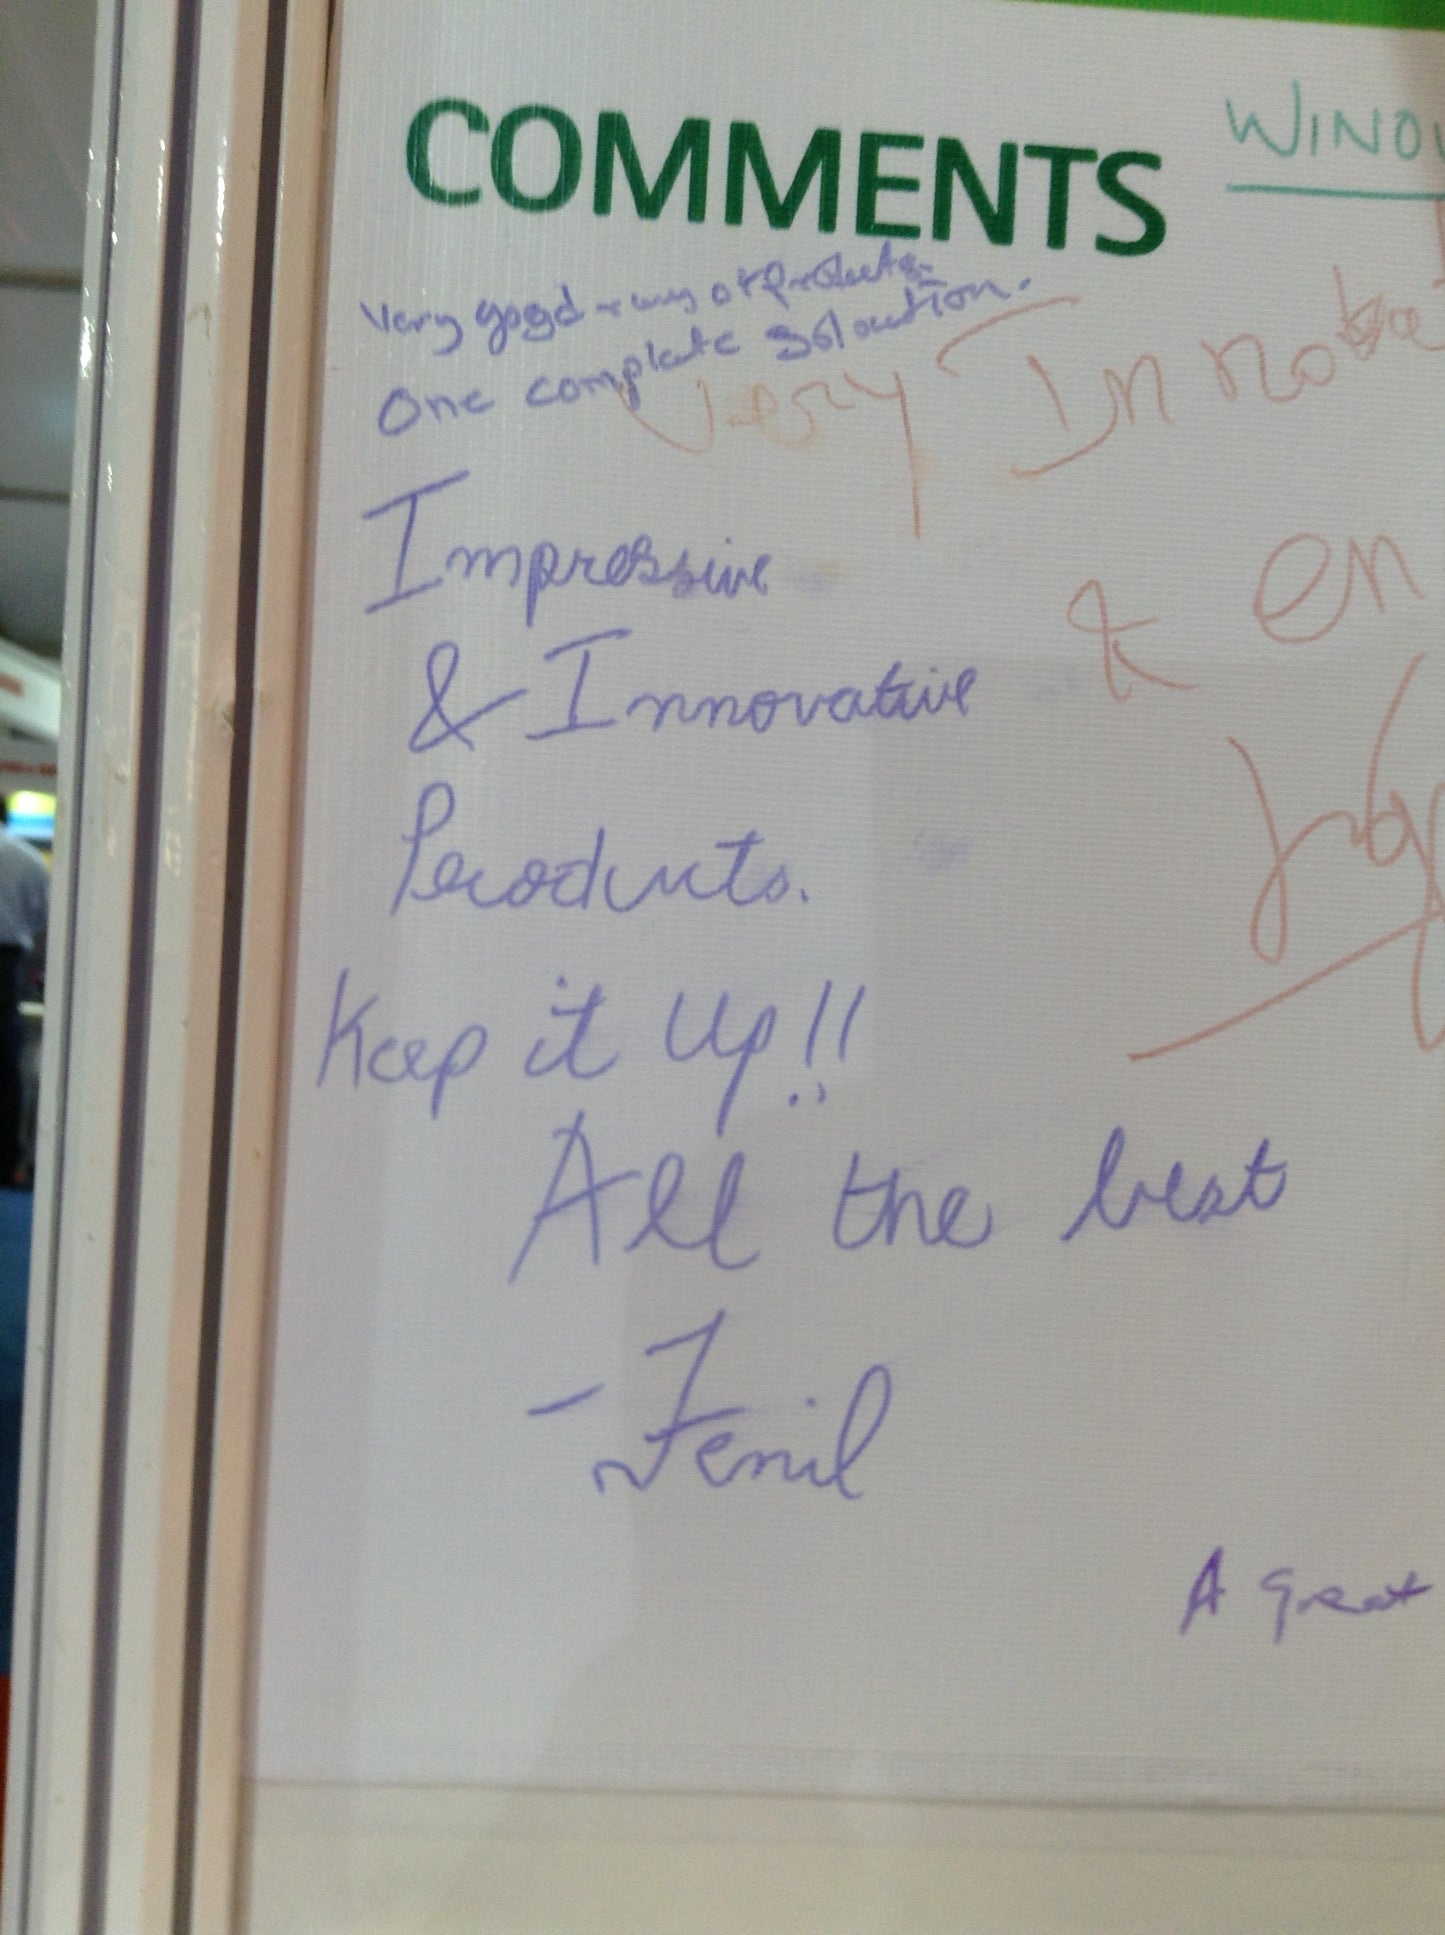 COMMENTS
Very good range of products.
One complete soloution.
Very Innovat
& en
Impressive
& Innovative
Products.
Keep it Up!!
All the best
- Fenil
A great